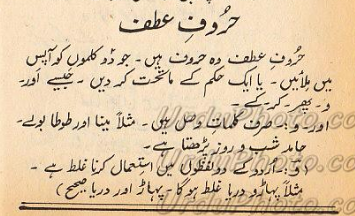 حُروفِ عطف
حروفِ عطف وہ حروف ہیں۔ جو دو کلموں کو آپس
میں ملائیں۔ یا ایک حکم کے ماتحت کر دیں۔ جیسے اَور۔
و۔ پھر۔ کر۔ کے۔
اور۔ و:۔ حرف کلماتِ وصل ہیں۔ مثلاً مینا اور طوطا بولے۔
حامد شب و روز پڑھتا ہے۔
(و:۔ اُردو کے دو لفظوں میں استعمال کرنا غلط ہے۔
مثلاً پہاڑ و دریا غلط ہوگا۔ پہاڑ اور دریا صحیح)
UrduPhoto.com